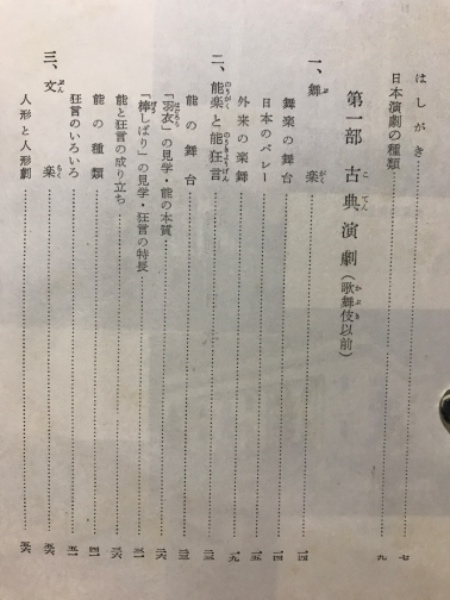 はしがき……七
日本演劇の種類……九
第一部 古典演劇（歌舞伎以前）
一、舞楽……一四
舞楽の舞台……一四
日本のバレー……一五
外来の楽舞……一九
二、能楽と能狂言……二三
能の舞台……二三
「羽衣」の見学・能の本質……二六
「棒しばり」の見学・狂言の特長……三一
能と狂言の成り立ち……三六
能の種類……四一
狂言のいろいろ……五一
三、文楽……五六
人形と人形劇……五六